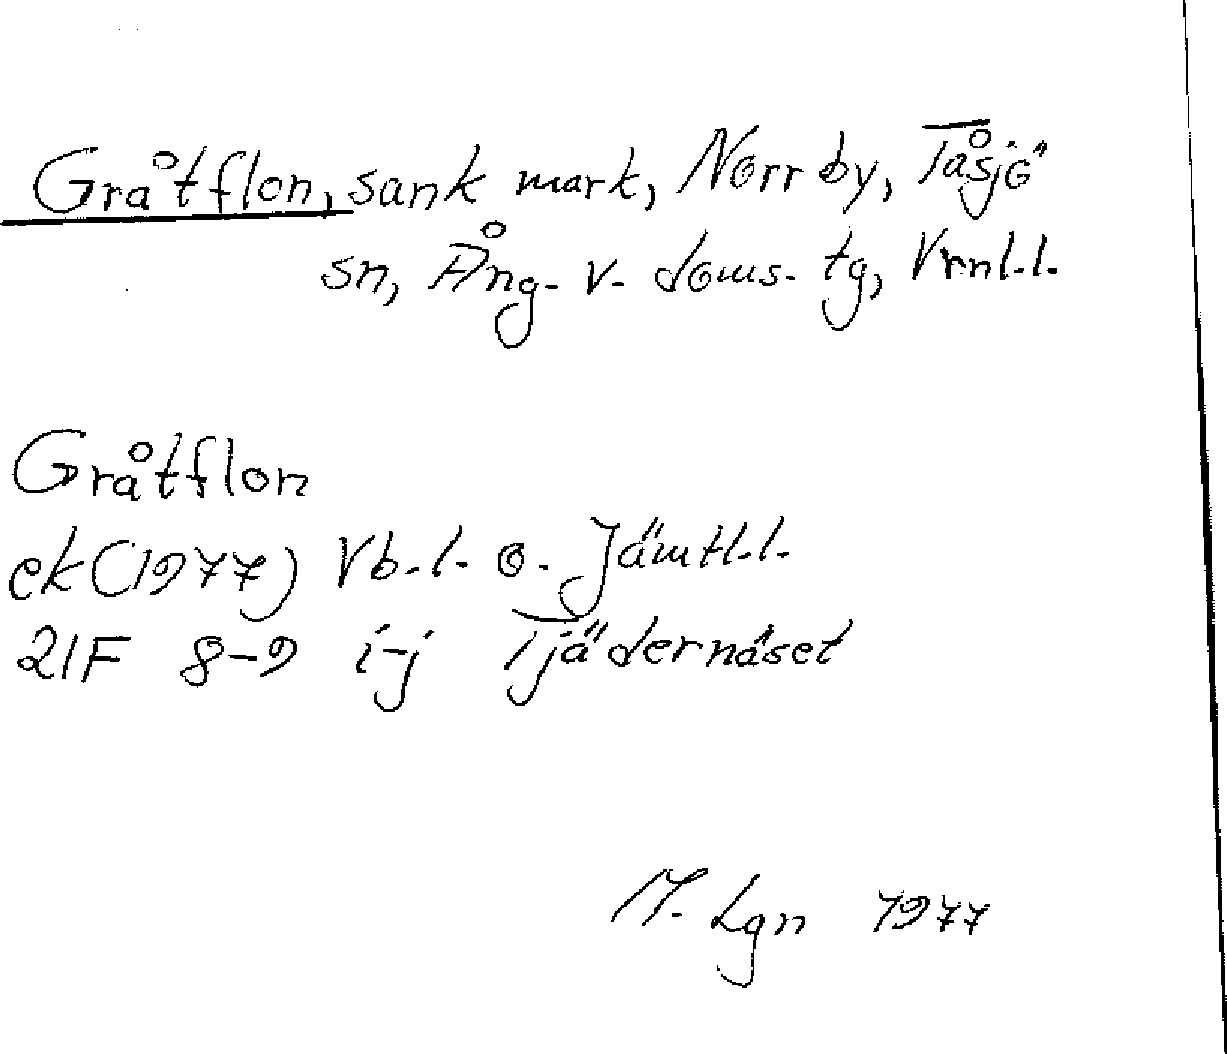 Gråtflon, sank mark, Norrby, Tåsjö
sn, Ång. v. doms. tg, Vrnl.l.
Gråtflon
ek (1977) Vb.l. o. Jämtl.l.
21F 8-9 i-j Tjädernäset
M. Lgn 1977